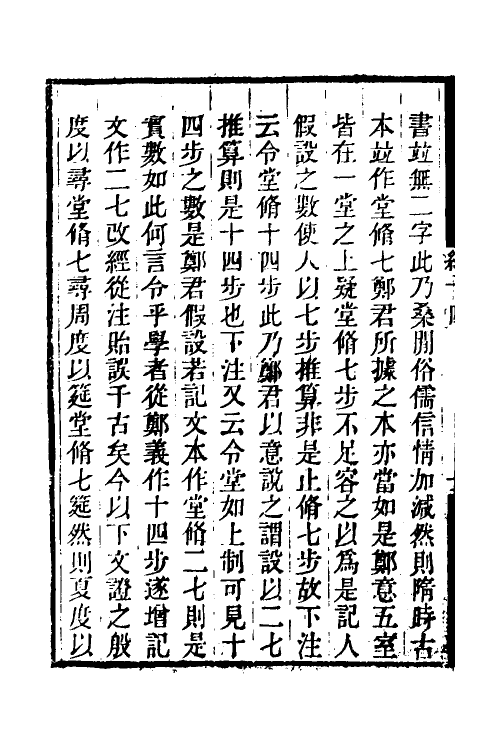 書竝無二字此乃桑閒俗儒信情加減然則隋時古
本竝作堂脩七鄭君所據之本亦當如是鄭意五室
皆在一堂之上疑堂脩七步不足容之以爲是記人
假設之數使人以七步推算非是止脩七步故下注
云令堂脩十四步此乃鄭君以意說之謂設以二七
推算則是十四步也下注又云令堂如上制可見十
四步之數是鄭君假設若記文本作堂脩二七則是
實數如此何言令乎學者從鄭義作十四步遂增記
文作二七改經從注貽誤千古矣今以下文證之殷
度以尋堂脩七尋周度以筵堂脩七筵然則夏度以